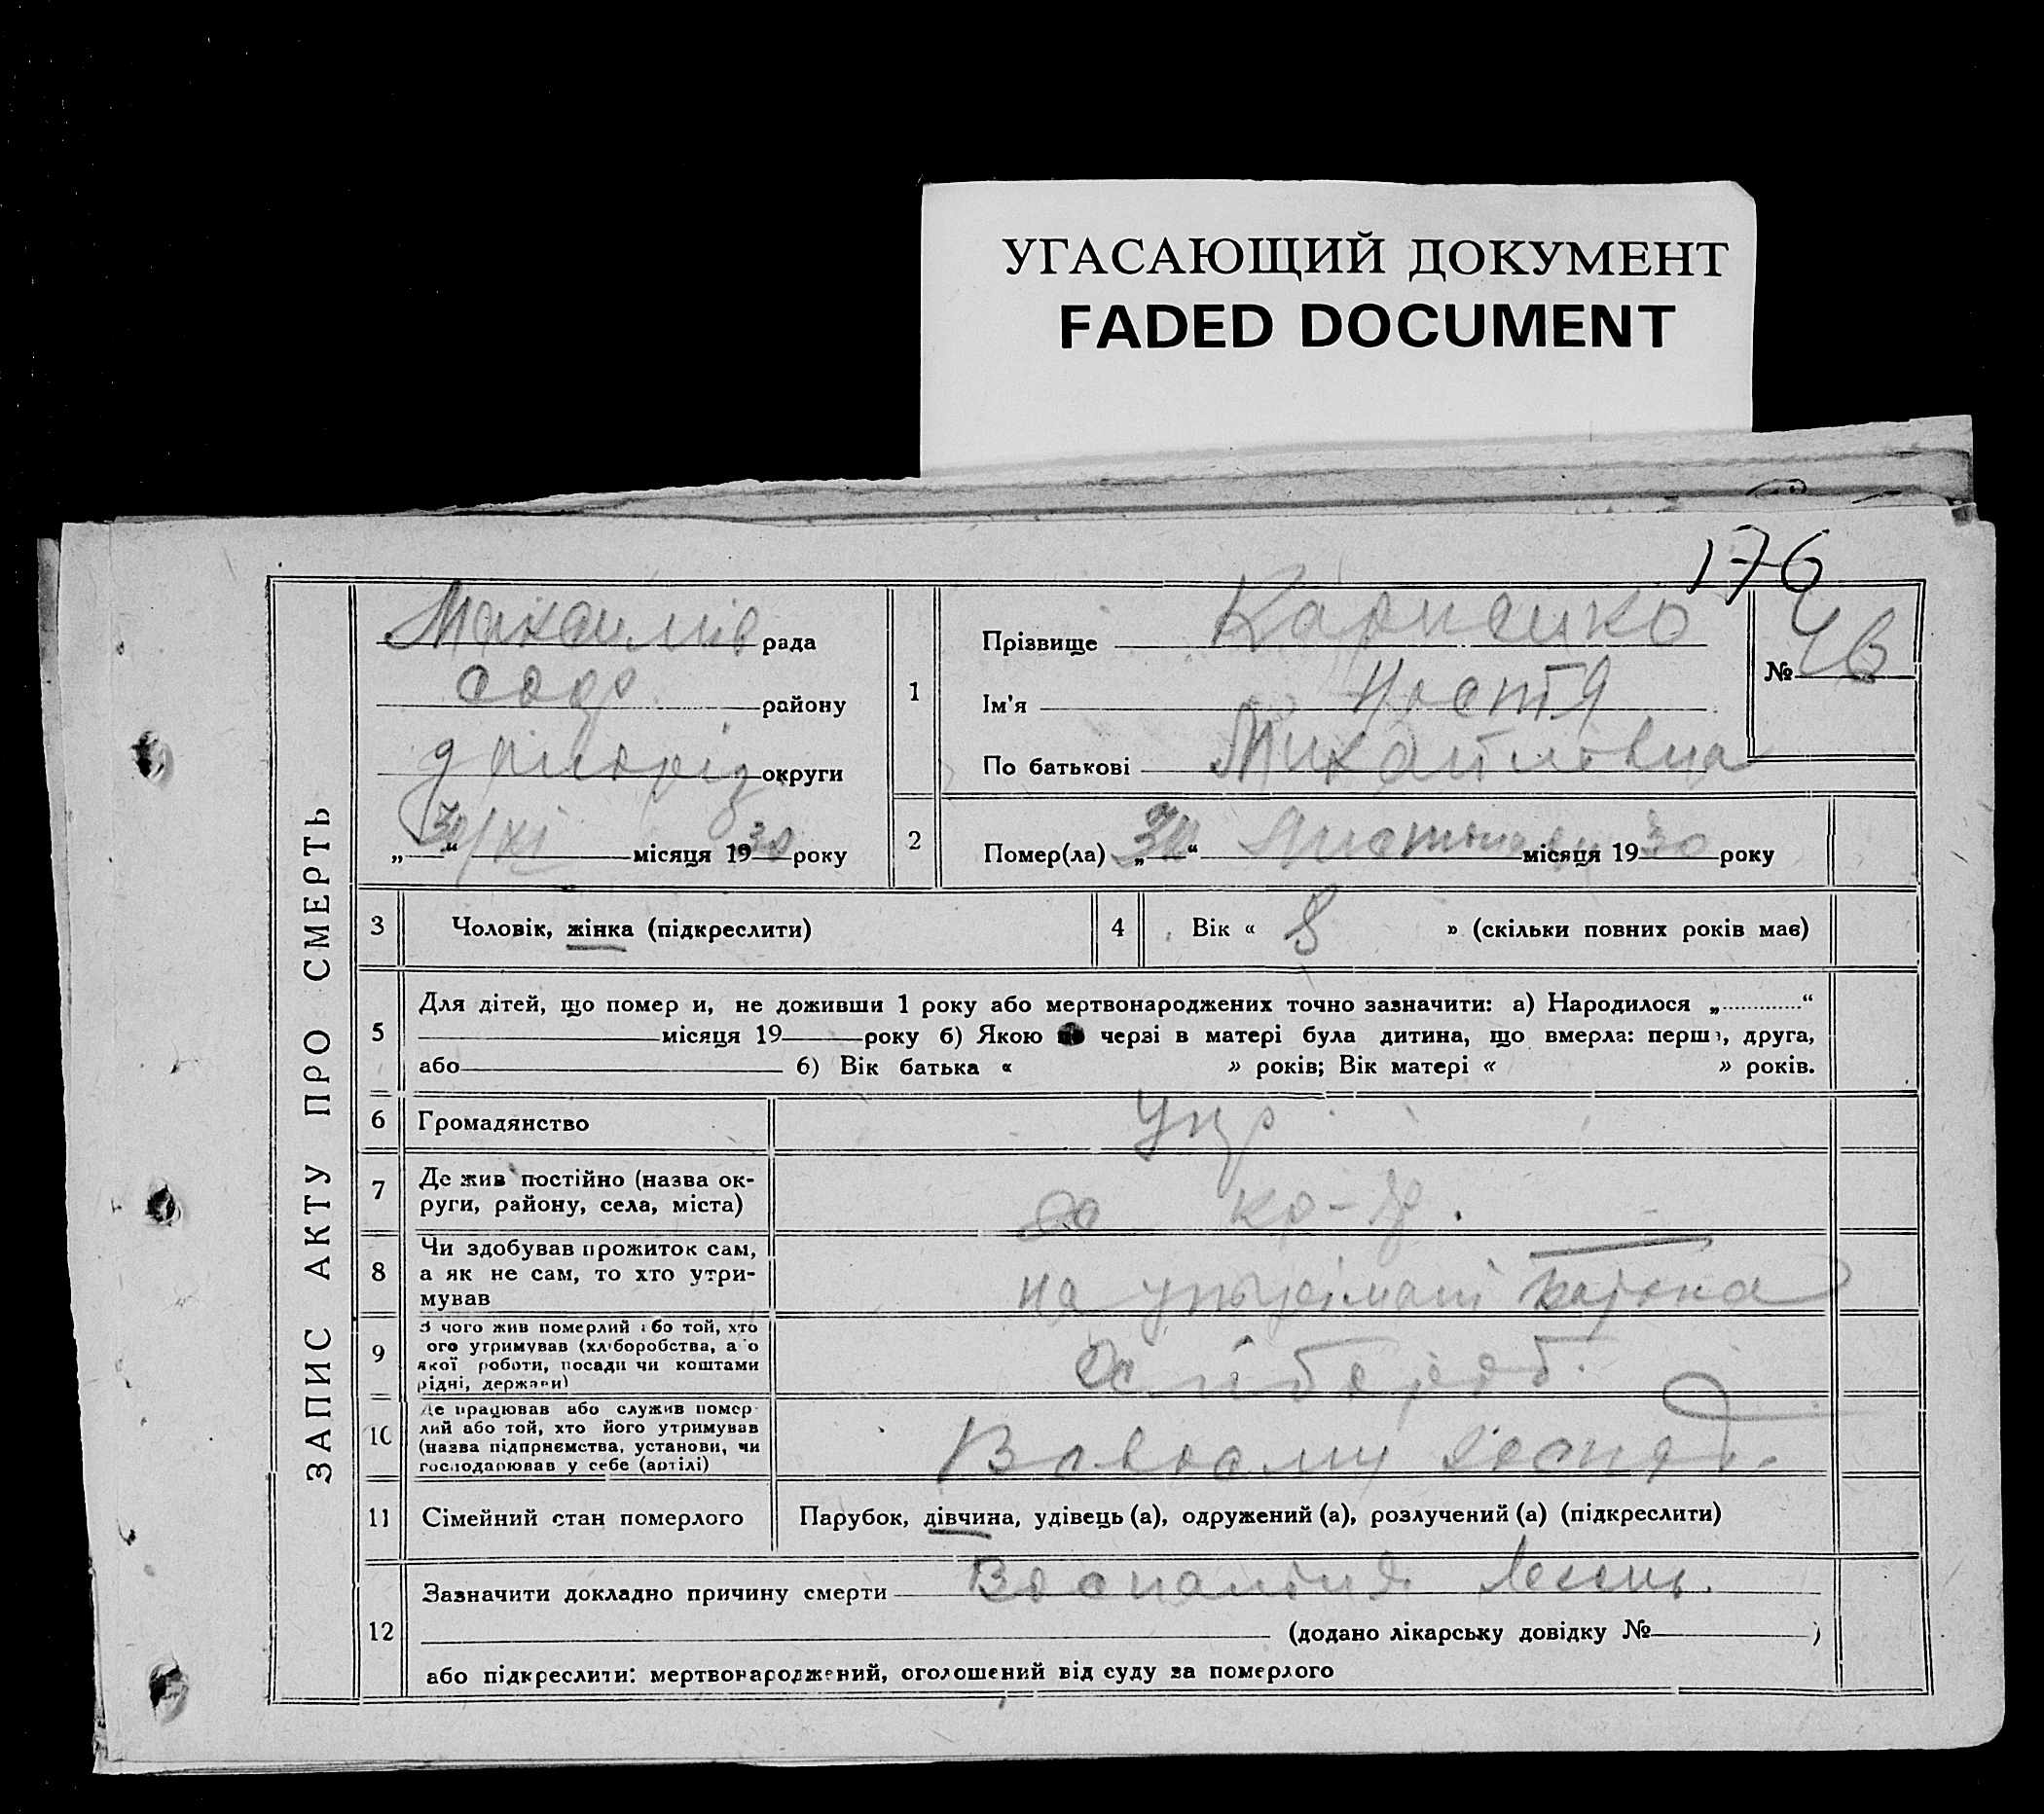 УГАСАЮЩИЙ ДОКУМЕНТ
FADED DOCUMENT
176
ЗАПИС АКТУ ПРО СМЕРТЬ
рада
району
округи
„30/XI“ місяця 1930 року
1
Прізвище Карпенко
Ім'я Настя
По батькові Михайловна
№
2
Помер(ла) „30“ місяця 1930 року
3 Чоловік, жінка (підкреслити)
4 Вік « 8 » (скільки повних років має)
5
Для дітей, що помер и, не доживши 1 року або мертвонароджених точно зазначити: а) Народилося „ “
місяця 19 року б) Якою черзі в матері була дитина, що вмерла: перш, друга,
або б) Вік батька « » років; Вік матері « » років.
6 Громадянство Укр
7 Де жив постійно (назва ок-
руги, району, села, міста)
8 Чи здобував прожиток сам,
а як не сам, то хто утри-
мував
на утрімані батька
9 З чого жив померлий або той, хто
ого утримував (хліборобства, або
якої роботи, посади чи коштами
рідні, держави)
Хлібороб.
10 Де працював або служив помер-
лий або той, хто його утримував
(назва підприємства, установи, чи
господарював у себе (артілі)
11 Сімейний стан померлого Парубок, дівчина, удівець (а), одружений (а), розлучений (а) (підкреслити)
12
Зазначити докладно причину смерти
(додано лікарську довідку № )
або підкреслити: мертвонароджений, оголошений від суду за померлого